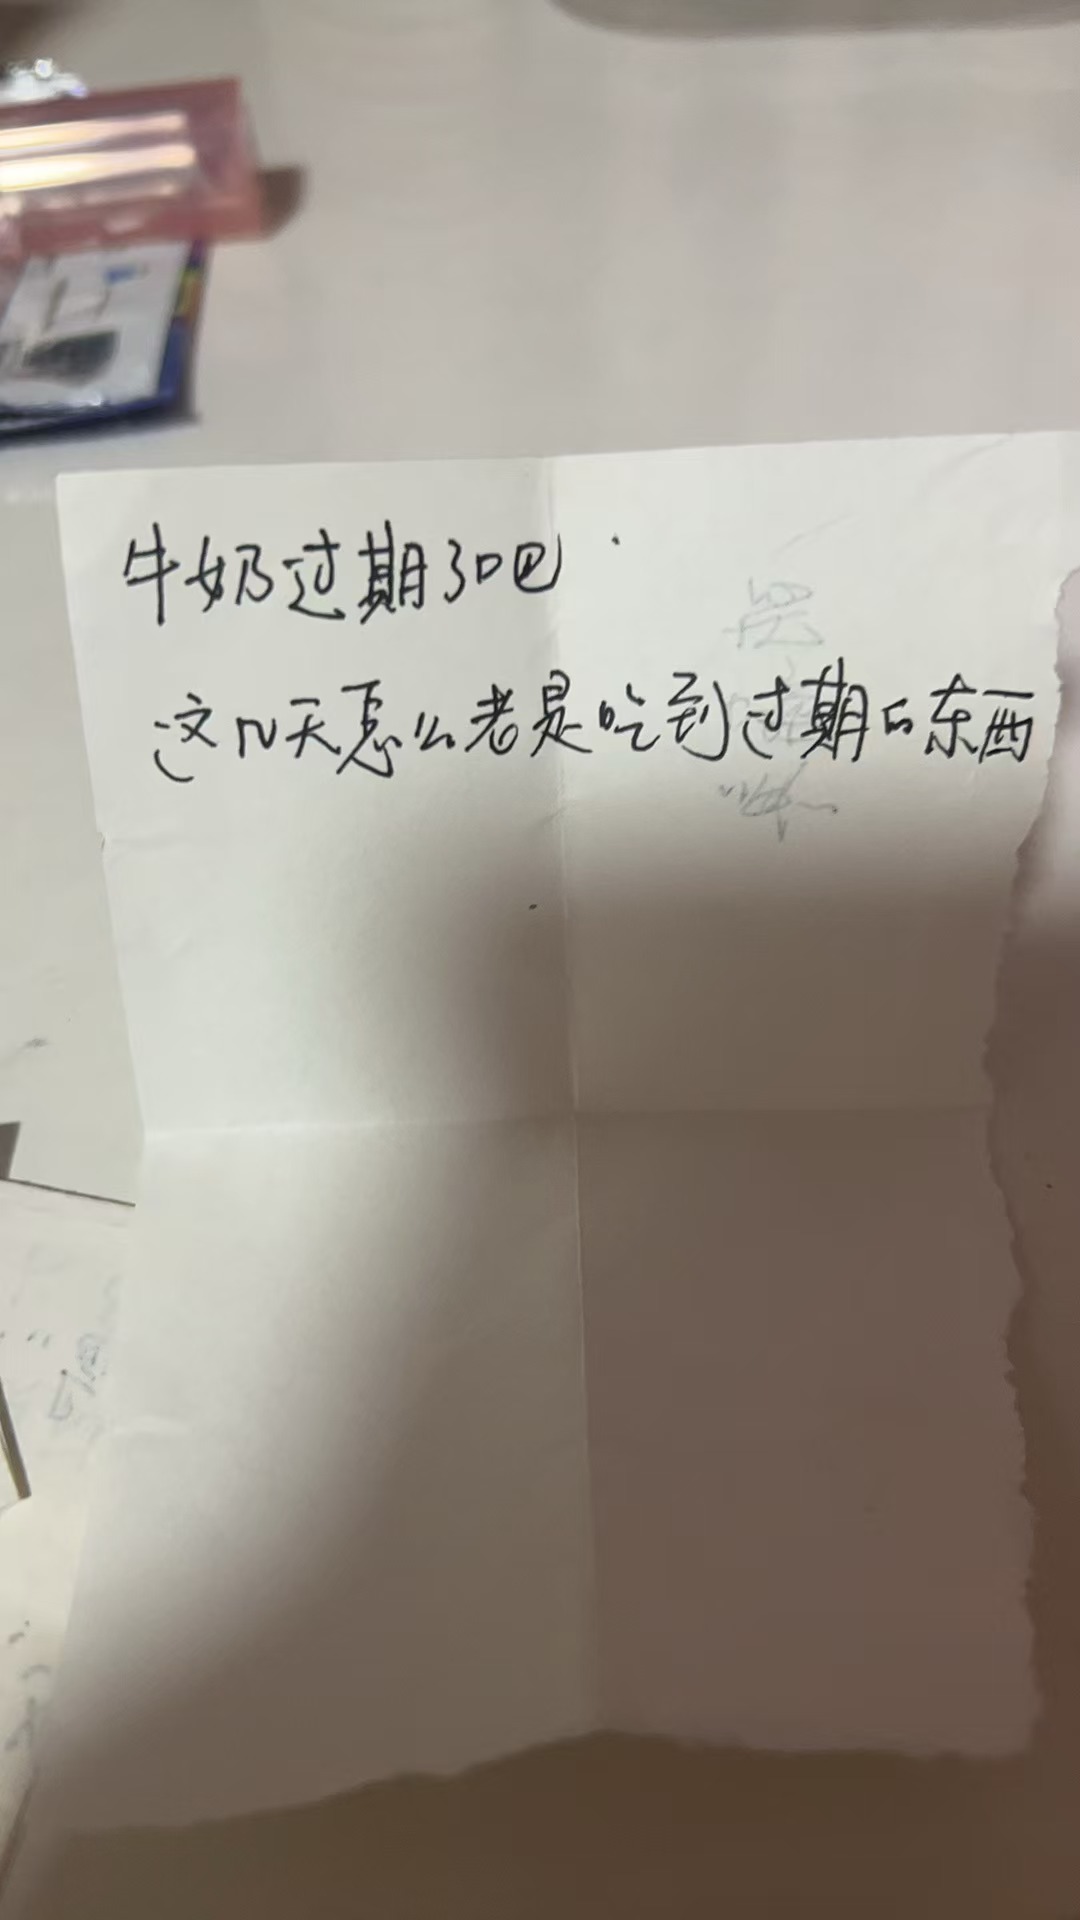 牛奶过期了吧
这几天怎么老是吃到过期的东西